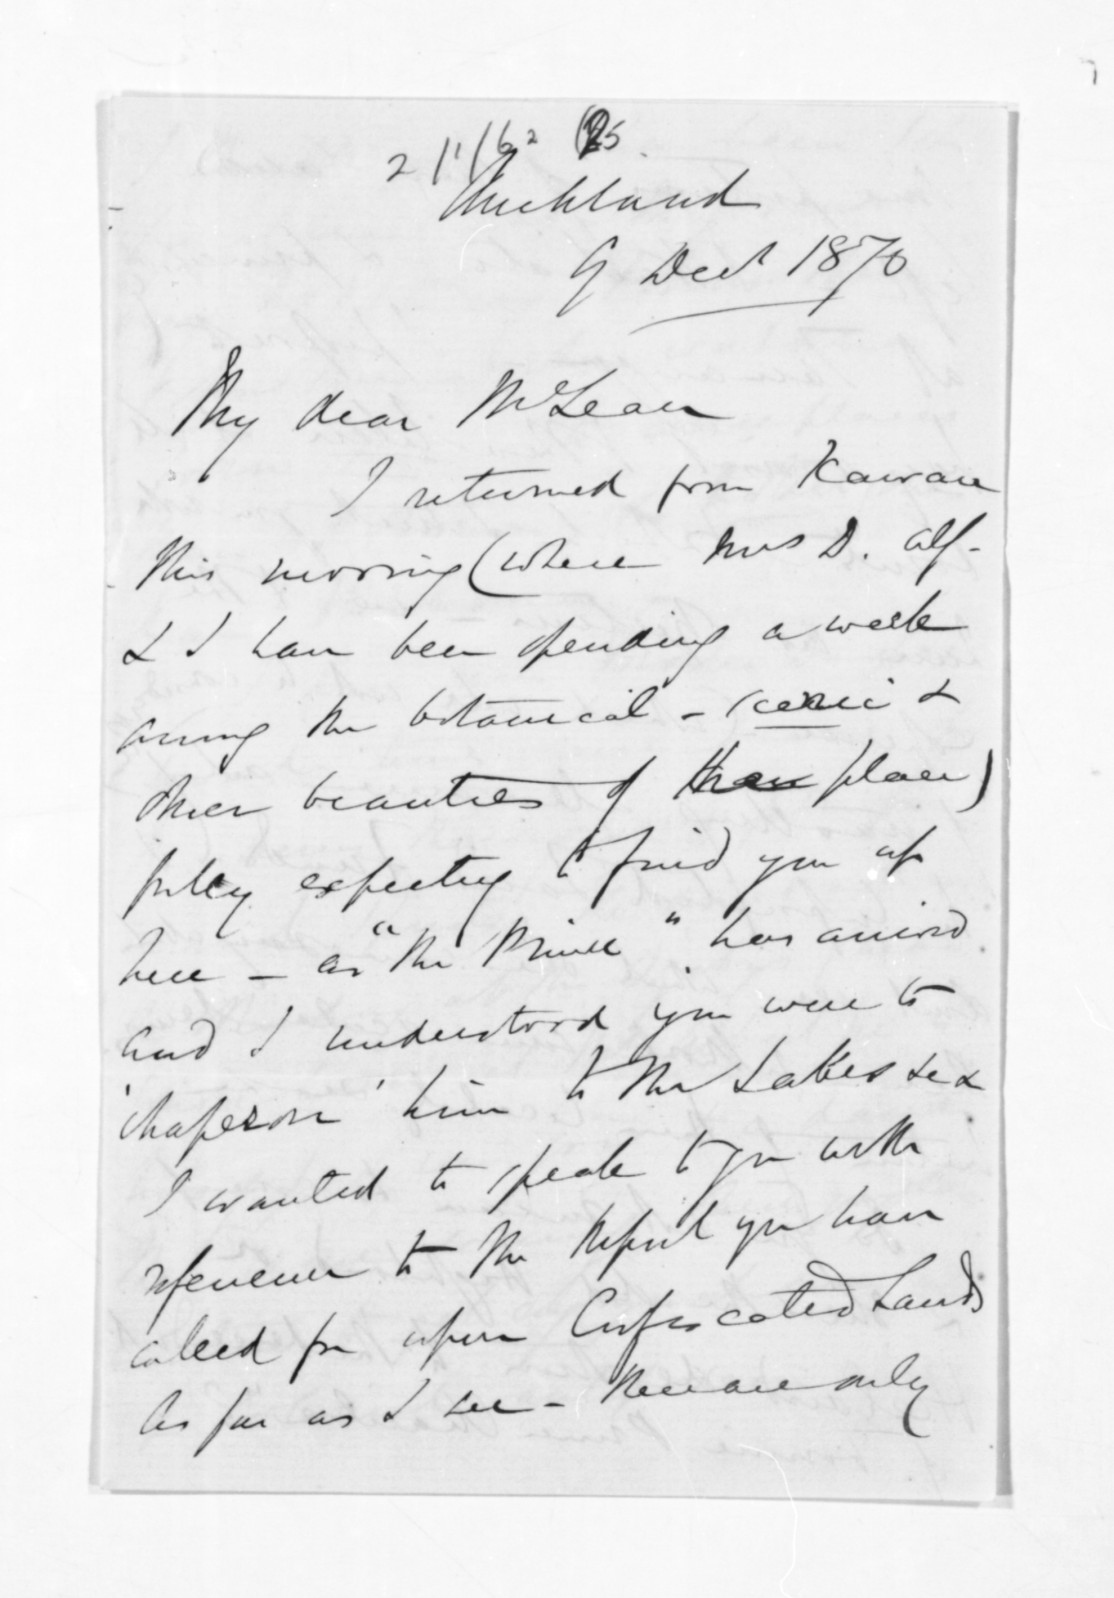 Auckland
9 Decr 1870
My dear McLean
I returned from Kawau
this morning (where Mrs D. Alf-
& I have been spending a week
among the botanical - scenic &
other beauties of place)
fully expecting to find you up
here - as "the Prince" has arrived
and I understood you were to
'chaperon' him to the Lakes
I wanted to speak to you with
reference to the Report you have
called for upon Confiscated Lands
As far as I see - there are only